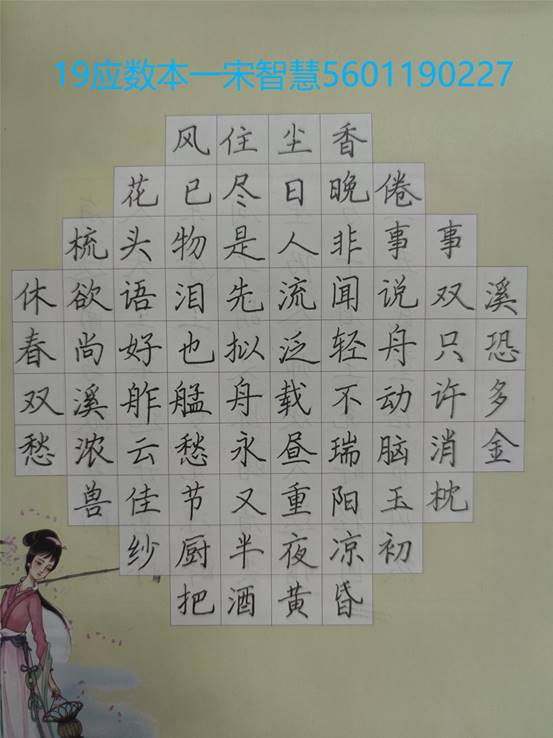 19应数本一宋智慧5601190227
风住尘香
花已尽日晚倦
梳头物是人非事事
休欲语泪先流闻说双溪
春尚好也拟泛轻舟只恐
双溪舴艋舟载不动许多
愁浓云愁永昼瑞脑消金
兽佳节又重阳玉枕
纱厨半夜凉初
把酒黄昏